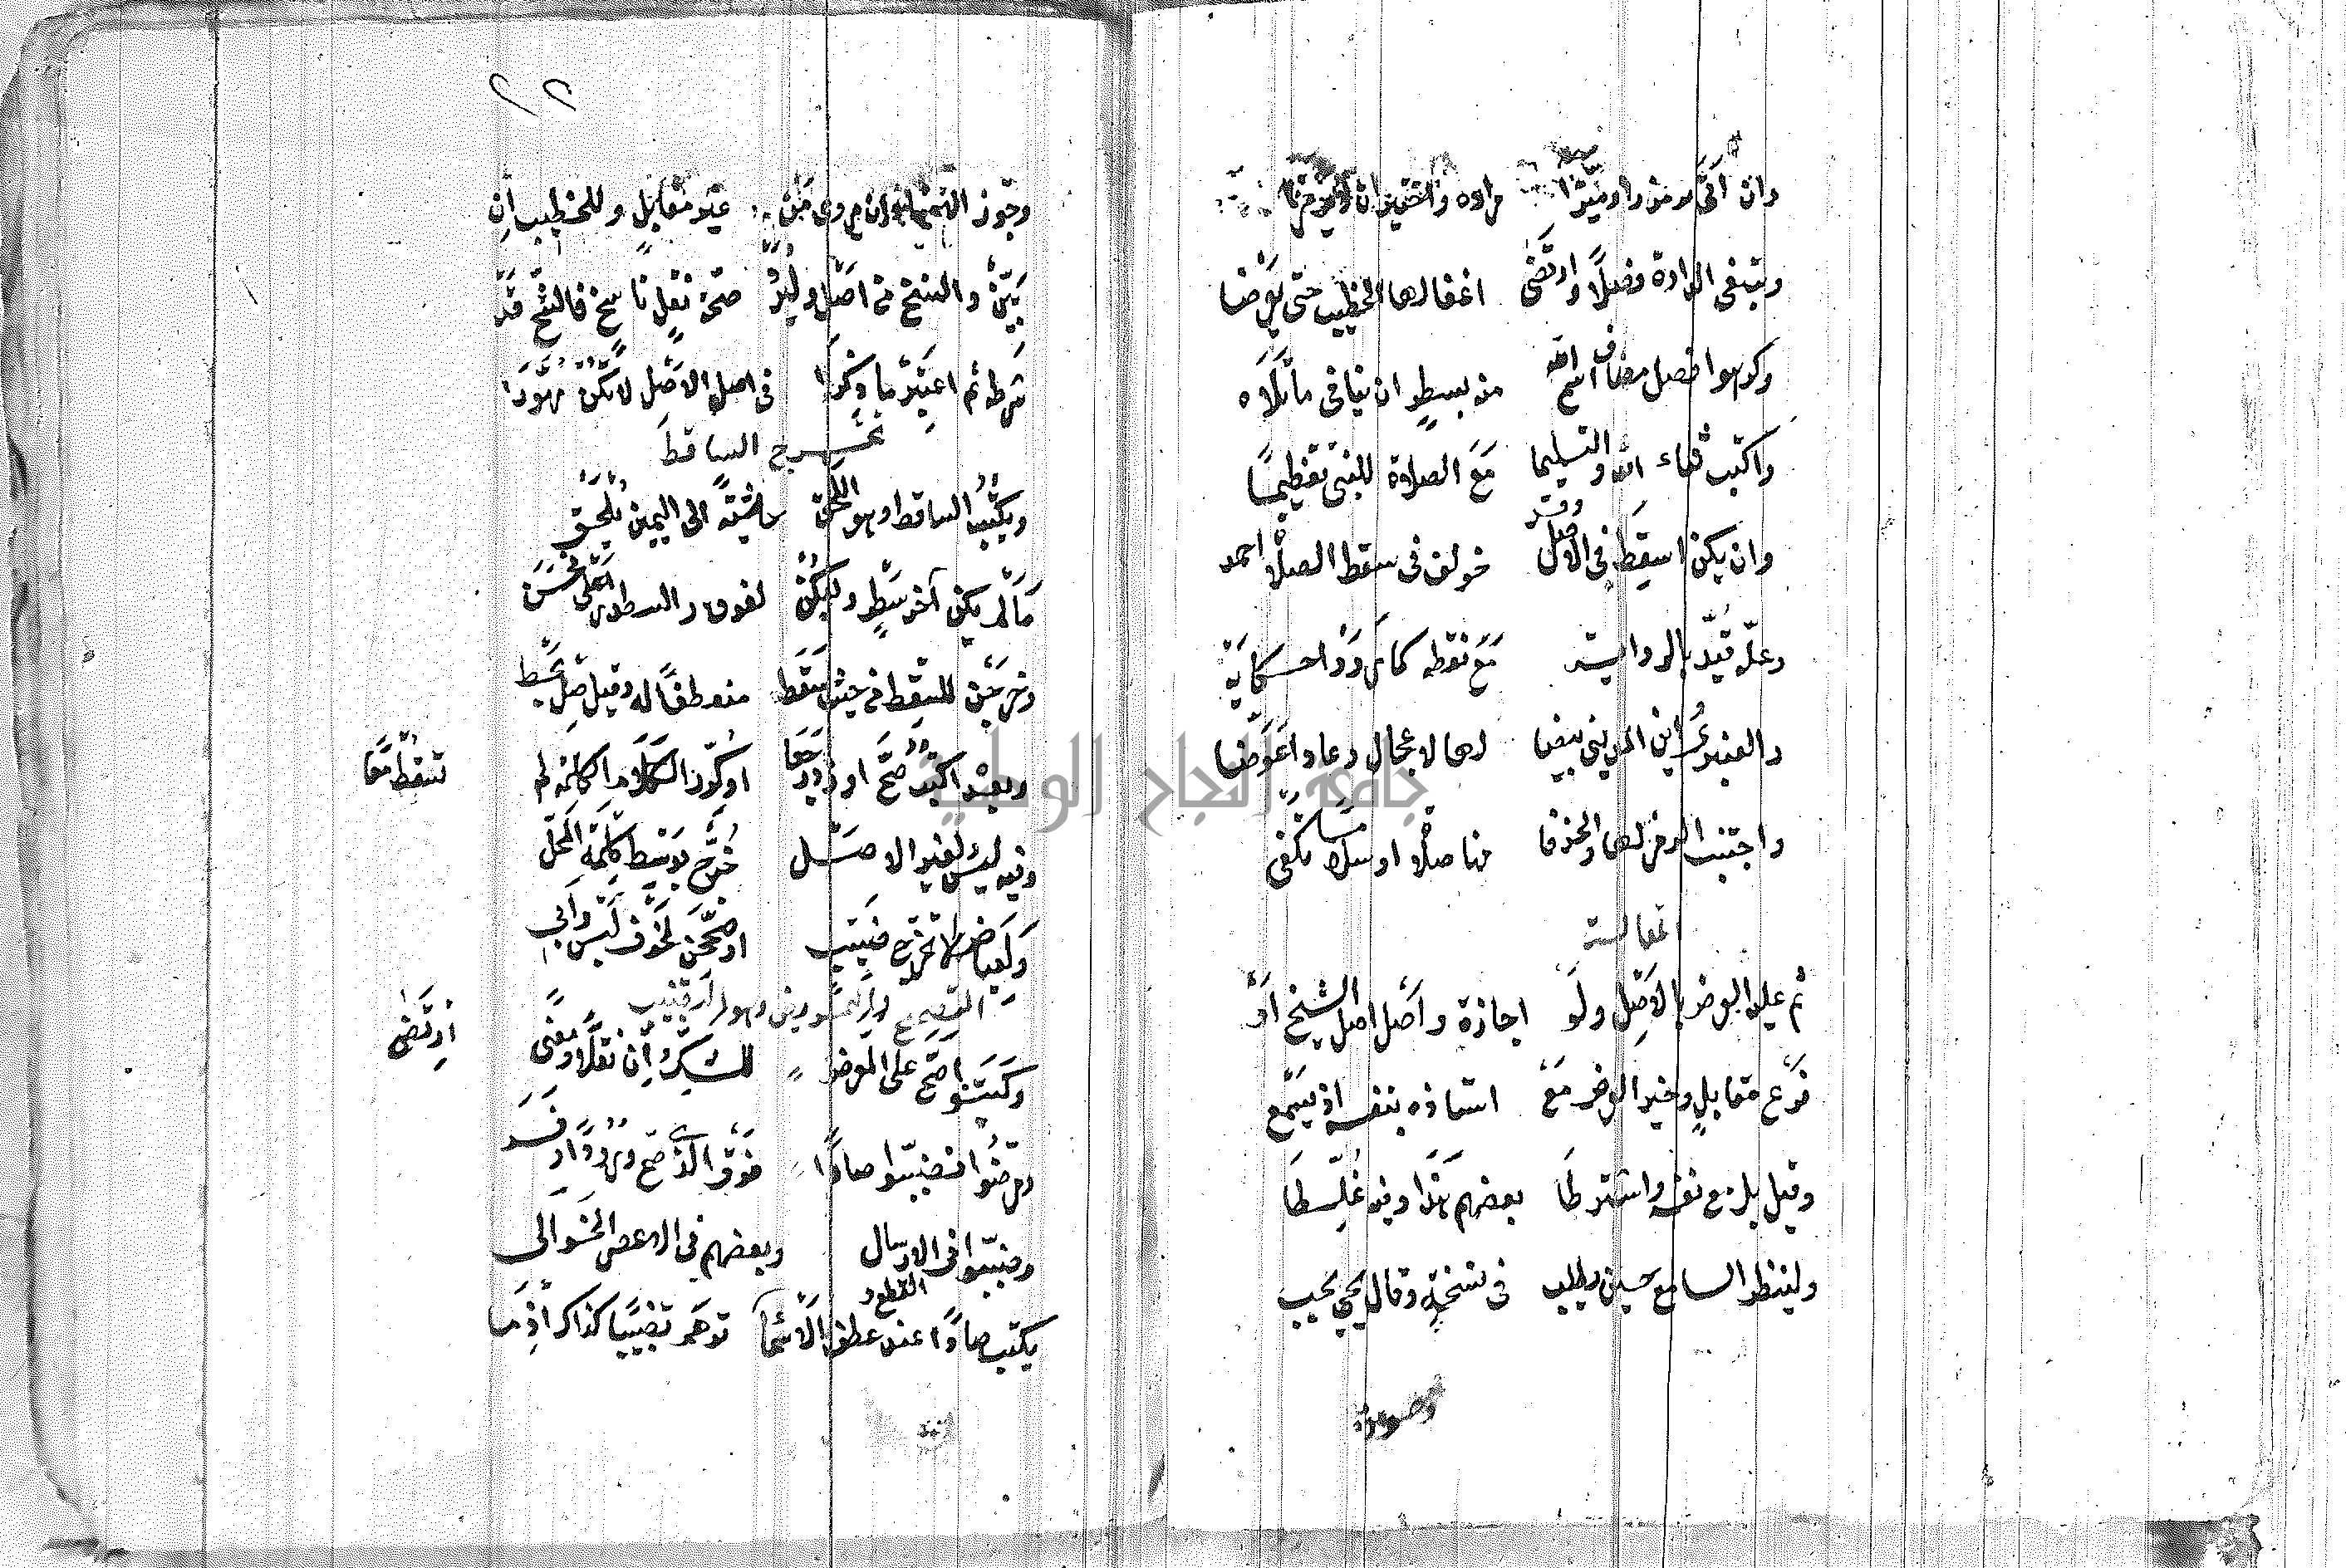 وان اتى برمز راو ميزا مراده واختير ان لا يرمزا
وينبغي الدارة فصلا وارتضى اغفالها الخطيب حتى يعرضا
وكرهوا فصل مضاف اسم الله منه بسطر ان ينافي ما تلاه
واكتب ثناء الله والتسليما مع الصلاة للنبي تعظيما
وان يكن اسقط في الاصل وقد خولف في سقط الصلاة احمد
وعله قيد بالرواية مع نطقه كما رووا حكاية
والعنبري وابن المديني بيضا لها لاعجال وعادا عوضا
واجتنب الرمز لها والحذفا منها صلاة او سلاما تكفى
المقابلة
ثم عليه العرض بالاصل ولو اجازة واصل اصل الشيخ او
فرع مقابل وخير العرض مع استاذه بنفسه اذ يسمع
وقيل بل مع نفسه واشترطا بعضهم هذا وفيه غلطا
ولينظر السامع حين يطلب في نسخة وقال يحيى يجب
وجوز الاستاذ ان يروي من غير مقابل وللخطيب ان
بين والنسخ من اصل وليزد صحة نقل ناسخ فالشيخ قد
شرطه ثم اعتبر ما ذكرا في اصل الاصل لا تكن مهورا
تخريج الساقط
ويكتب الساقط وهو اللحق حاشية الى اليمين يلحق
ما لم يكن آخر سطر وليكن لفوق والسطور اعلى فحسن
وخرجن للسقط من حيث سقط منعطفا له وقيل صل بخط
وبعده اكتب صح او زد رجعا او كرر الكلمة لم تسقط معا
وفيه لبس ولغير الاصل خرج بوسط كلمة المحل
ولعياض لا تخرج ضبب او صححن لخوف لبس وابي
التصحيح والتمريض وهو التضبيب
وكتبوا صح على المعرض للشك ان نقلا ومعنى ارتضي
ومرضوا فضببوا صادا تمد فوق الذي صح ورودا وفسد
وضببوا في القطع والارسال وبعضهم في الاعصر الخوالي
يكتب صادا عند عطف الاسما توهم تضبيبا كذاك اذ ما